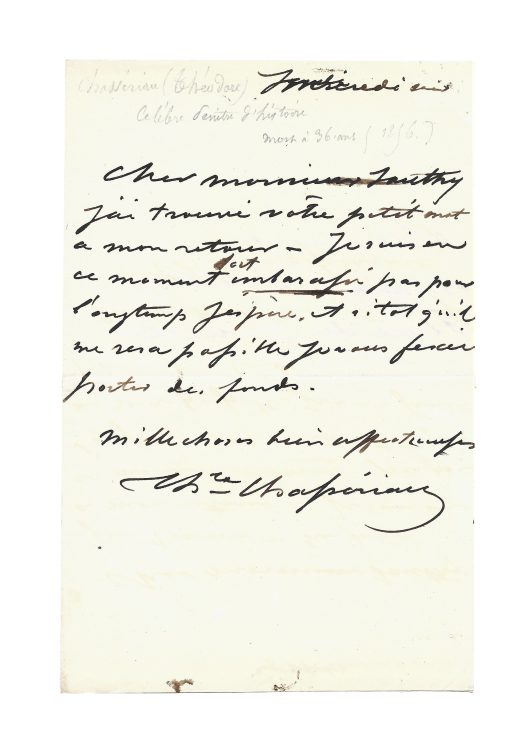 Chassériau (Théodore)
mercredi soir
Célèbre Peintre d'histoire
mort à 36 ans (1856.)
Cher monsieur Gauthy
j'ai trouvé votre petit mot
a mon retour – Je suis en
fort
ce moment embarassé pas pour
longtemps j'espère, et sitot qu'il
me sera possible je vous ferai
porter des fonds.
Mille choses bien affectueuses
Thre Chassériau